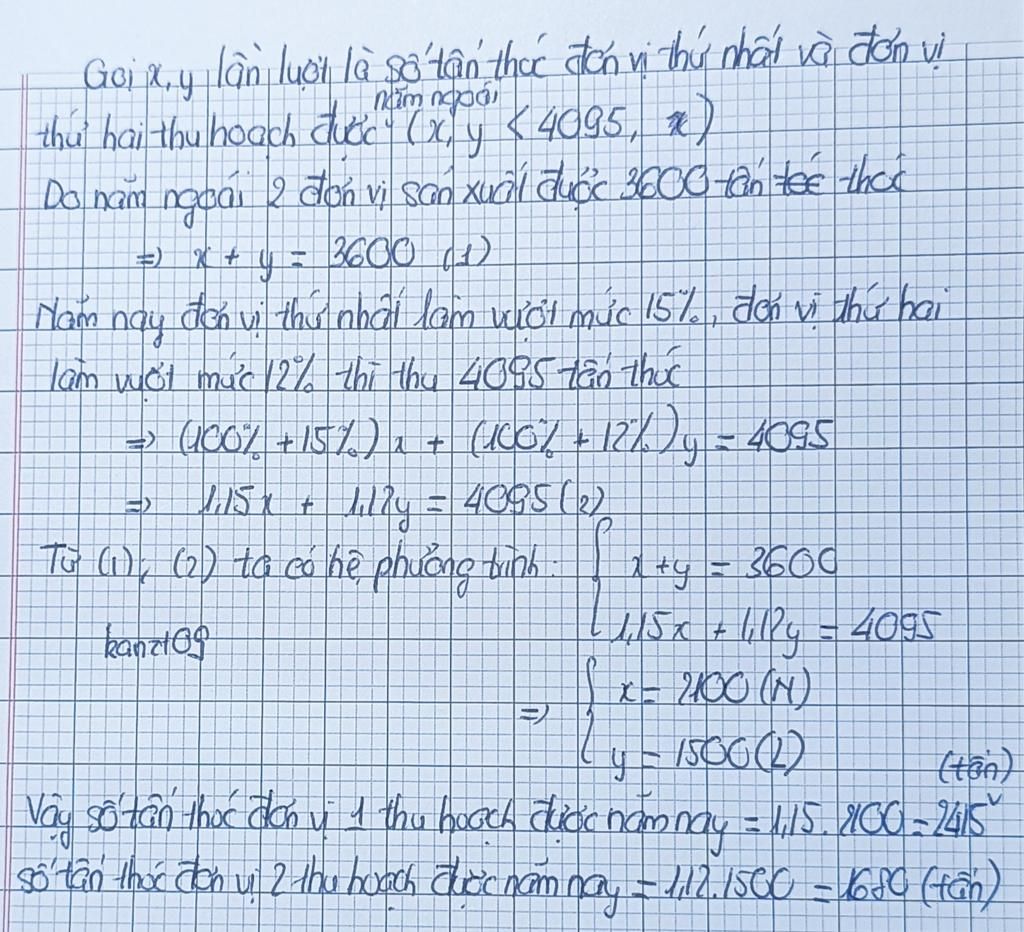 Gọi x, y lần lượt là số tấn thóc đơn vị thứ nhất và đơn vị
năm ngoái
thứ hai thu hoạch được (x, y < 4095, x)
Do năm ngoái 2 đơn vị sản xuất được 3600 tấn thóc
=> x + y = 3600 (1)
Năm nay đơn vị thứ nhất làm vượt mức 15%, đơn vị thứ hai
làm vượt mức 12% thì thu 4095 tấn thóc
=> (100% + 15%)x + (100% + 12%)y = 4095
=> 1,15x + 1,12y = 4095 (2)
Từ (1), (2) ta có hệ phương trình: { x + y = 3600
1,15x + 1,12y = 4095
kanzt09
=> { x = 2100 (N)
y = 1500 (L)
(tấn)
Vậy số tấn thóc đơn vị 1 thu hoạch được năm nay = 1,15. 2100 = 2415
số tấn thóc đơn vị 2 thu hoạch được năm nay = 1,12. 1500 = 1680 (tấn)